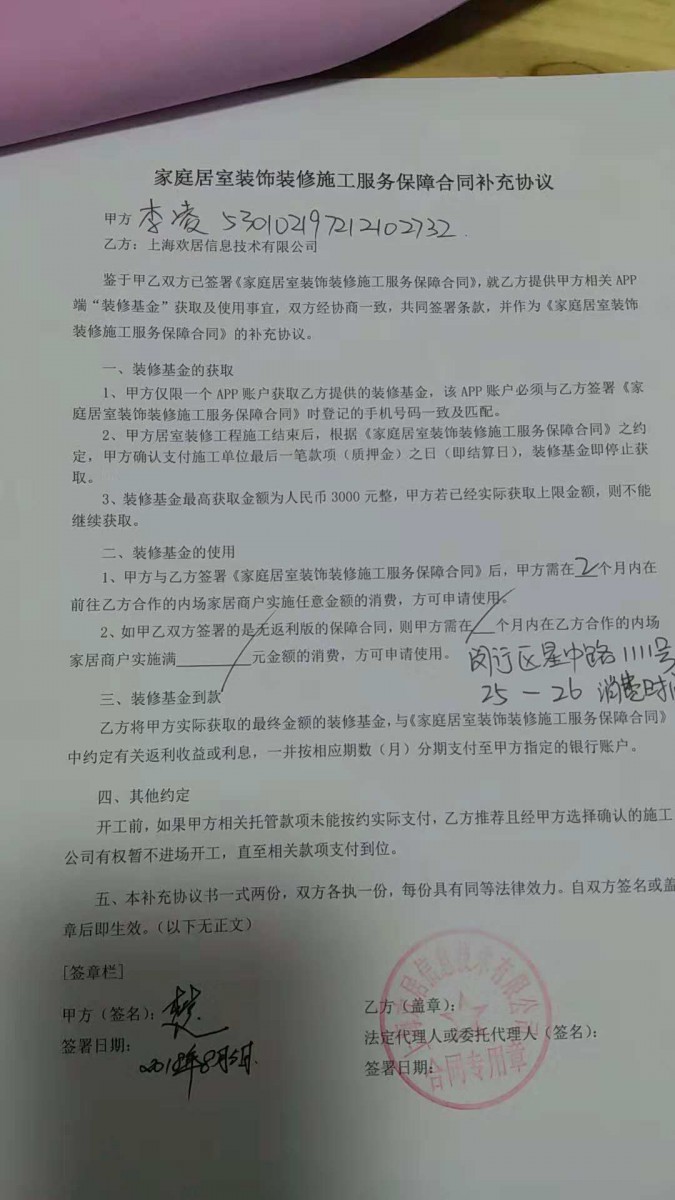 家庭居室装饰装修施工服务保障合同补充协议
甲方 李凌 530102197212102732
乙方：上海欢居信息技术有限公司
鉴于甲乙双方已签署《家庭居室装饰装修施工服务保障合同》，就乙方提供甲方相关APP
端“装修基金”获取及使用事宜，双方经协商一致，共同签署条款，并作为《家庭居室装饰
装修施工服务保障合同》的补充协议。
一、装修基金的获取
1、甲方仅限一个APP账户获取乙方提供的装修基金，该APP账户必须与乙方签署《家
庭居室装饰装修施工服务保障合同》时登记的手机号码一致及匹配。
2、甲方居室装修工程施工结束后，根据《家庭居室装饰装修施工服务保障合同》之约
定，甲方确认支付施工单位最后一笔款项（质押金）之日（即结算日），装修基金即停止获
取。
3、装修基金最高获取金额为人民币3000元整，甲方若已经实际获取上限金额，则不能
继续获取。
二、装修基金的使用
1、甲方与乙方签署《家庭居室装饰装修施工服务保障合同》后，甲方需在 2 个月内在
前往乙方合作的内场家居商户实施任意金额的消费，方可申请使用。
2、如甲乙双方签署的是无返利版的保障合同，则甲方需在___个月内在乙方合作的内场
家居商户实施满________元金额的消费，方可申请使用。 闵行区星中路1111号
25-26 消费时
三、装修基金到款
乙方将甲方实际获取的最终金额的装修基金，与《家庭居室装饰装修施工服务保障合同》
中约定有关返利收益或利息，一并按相应期数（月）分期支付至甲方指定的银行账户。
四、其他约定
开工前，如果甲方相关托管款项未能按约实际支付，乙方推荐且经甲方选择确认的施工
公司有权暂不进场开工，直至相关款项支付到位。
五、本补充协议书一式两份，双方各执一份，每份具有同等法律效力。自双方签名或盖
章后即生效。（以下无正文）
[签章栏]
甲方（签名）：
签署日期：
乙方（盖章）：
法定代理人或委托代理人（签名）：
签署日期：
合同专用章